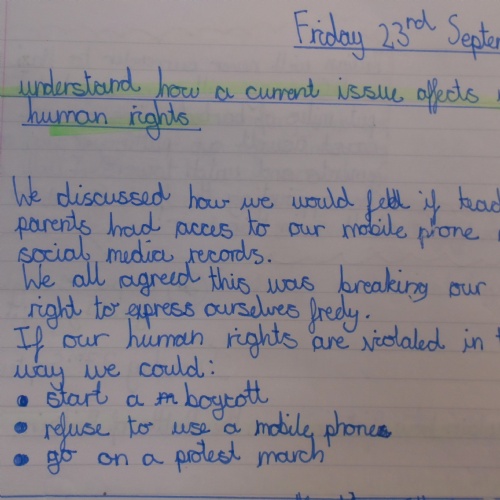 Friday 23rd Septem
understand how a current issue affects
human rights
We discussed how we would feel if teac
parents had acces to our mobile phone
social media records.
We all agreed this was breaking our
right to express ourselves freely.
If our human rights are violated in t
way we could:
• start a boycott
• refuse to use a mobile phone
• go on a protest march